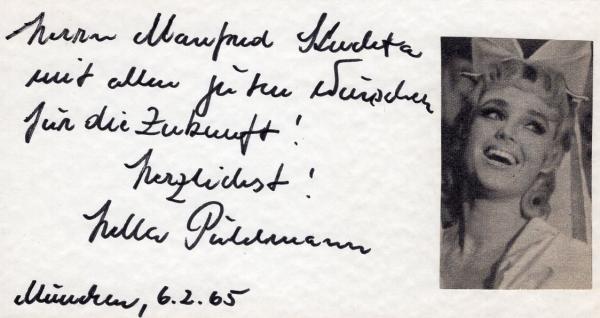 Herrn Manfred Kudeta
mit allen guten Wünschen
für die Zukunft!
herzlichst!
Hella Puhlmann
München, 6.2.65